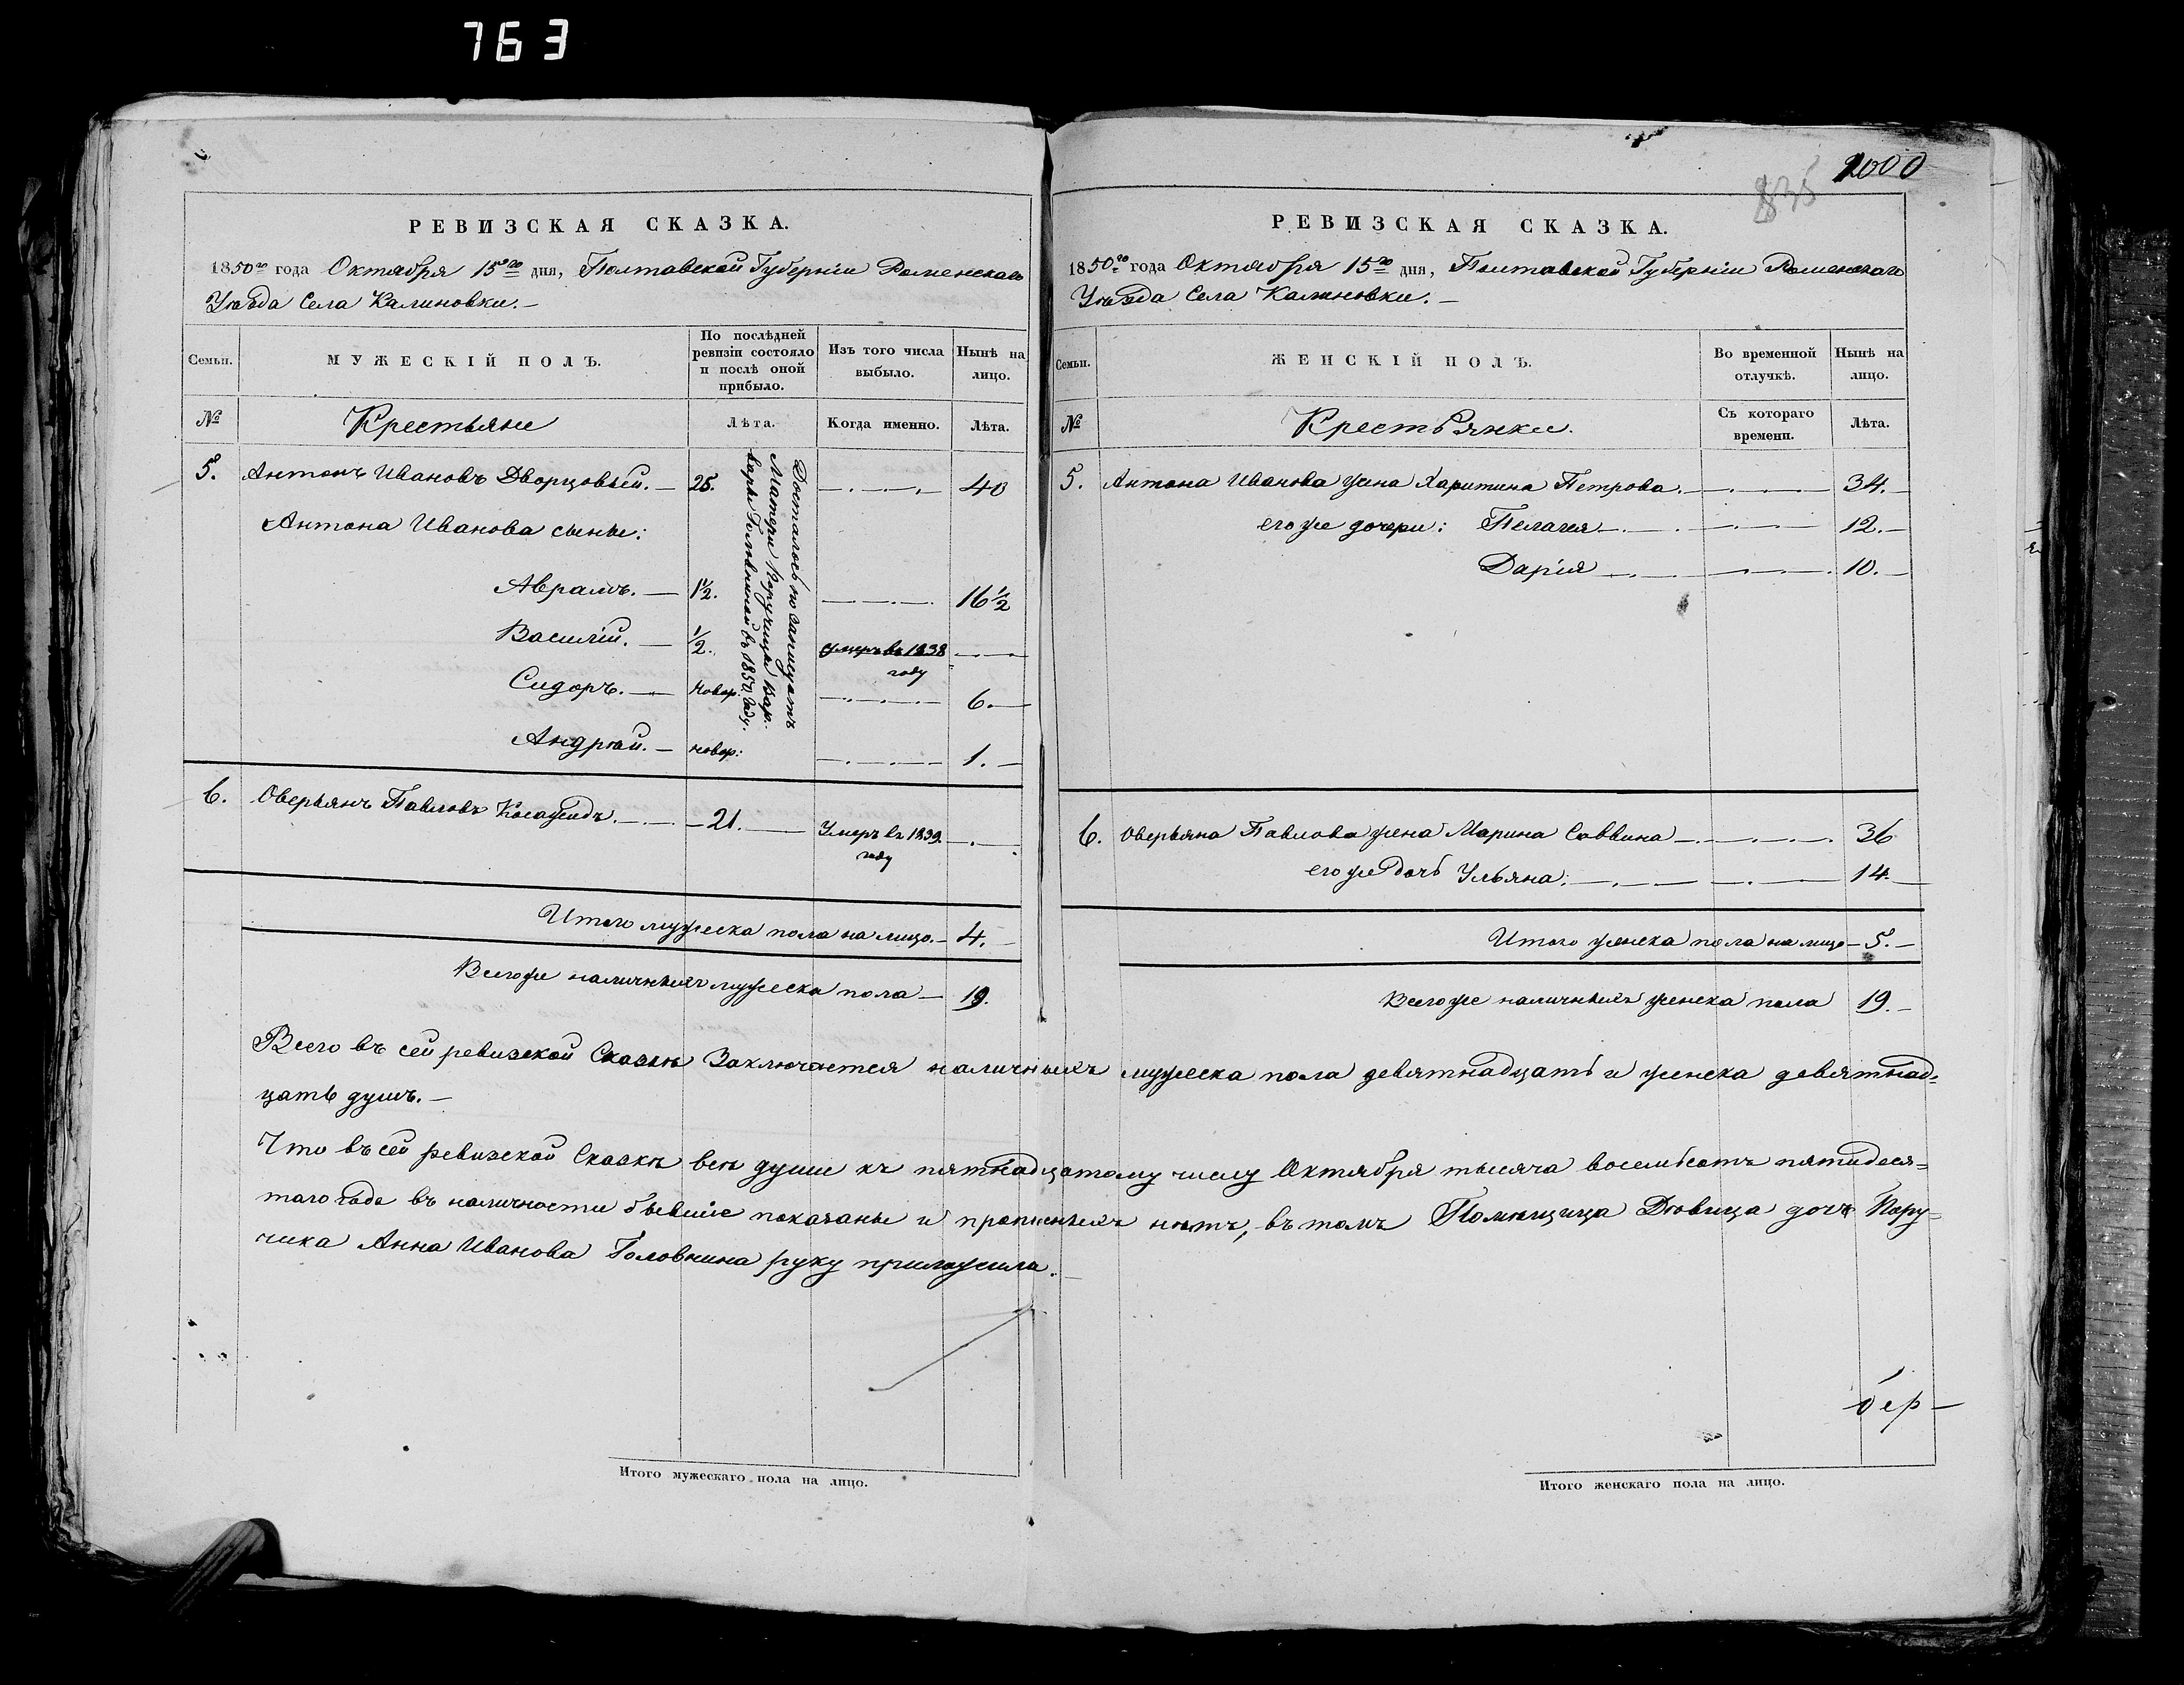 763
РЕВИЗСКАЯ СКАЗКА.
1850го года Октября 15го дня, Полтавской Губерніи Роменскаго
Уѣзда Села Калиновки. —
Семьи.
МУЖЕСКІЙ ПОЛЪ.
По послѣдней
ревизіи состояло
и послѣ оной
прибыло.
Изъ того числа
выбыло.
Нынѣ на
лицо.
№
Крестьяне
Лѣта.
Когда именно.
Лѣта.
5. Антонъ Ивановъ Дворцовый. — 25. 40
Антона Иванова сыны:
Аврамъ. — 1½. 16½
Василій. — ½. умеръ въ 1838
году
Сидоръ. — новор: 6. —
Андрѣй. — новор: 1. —
Досталось по
Матери Поручицы Вар-
вары Головниной въ 1850 году.
6. Оверьянъ Павловъ — 21. — Умеръ въ 1839.
году
Итого мужеска пола на лицо. — 4. —
Всего же наличныхъ мужеска пола — 19.
2000
835
РЕВИЗСКАЯ СКАЗКА.
1850го года Октября 15го дня, Полтавской Губерніи Роменскаго
Уѣзда Села Калиновки. —
Семьи.
ЖЕНСКІЙ ПОЛЪ.
Во временной
отлучкѣ.
Нынѣ на
лицо.
№
Крестьянки.
Съ котораго
времени.
Лѣта.
5. Антона Иванова жена Харитина Петрова. 34. —
его же дочери: Пелагея 12. —
Дарія 10. —
6. Оверьяна Павлова жена Марина Саввина 36
его же дочь Ульяна. 14. —
Итого женска пола на лицо — 5. —
Всего же наличныхъ женска пола 19. —
Всего въ сей ревизской Сказкѣ Заключается наличныхъ мужеска пола девятнадцать и женска девятнад=
цать душъ. —
Что въ сей ревизской Сказкѣ всѣ души къ пятнадцатому числу Октября тысяча восемьсотъ пятидеся=
таго года въ наличности бывшіе показаны и прописныхъ нѣтъ, въ томъ Помѣщица Дѣвица дочь Пору=
чика Анна Иванова Головнина руку приложила.
Итого мужескаго пола на лицо.
Итого женскаго пола на лицо.